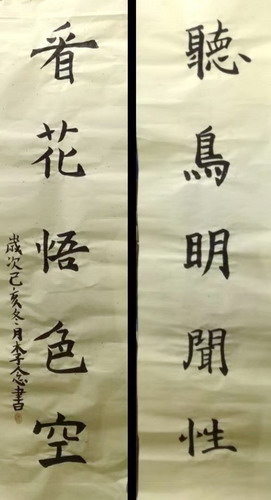 聽鳥明聞性
看花悟色空
歲次己亥冬月李念書